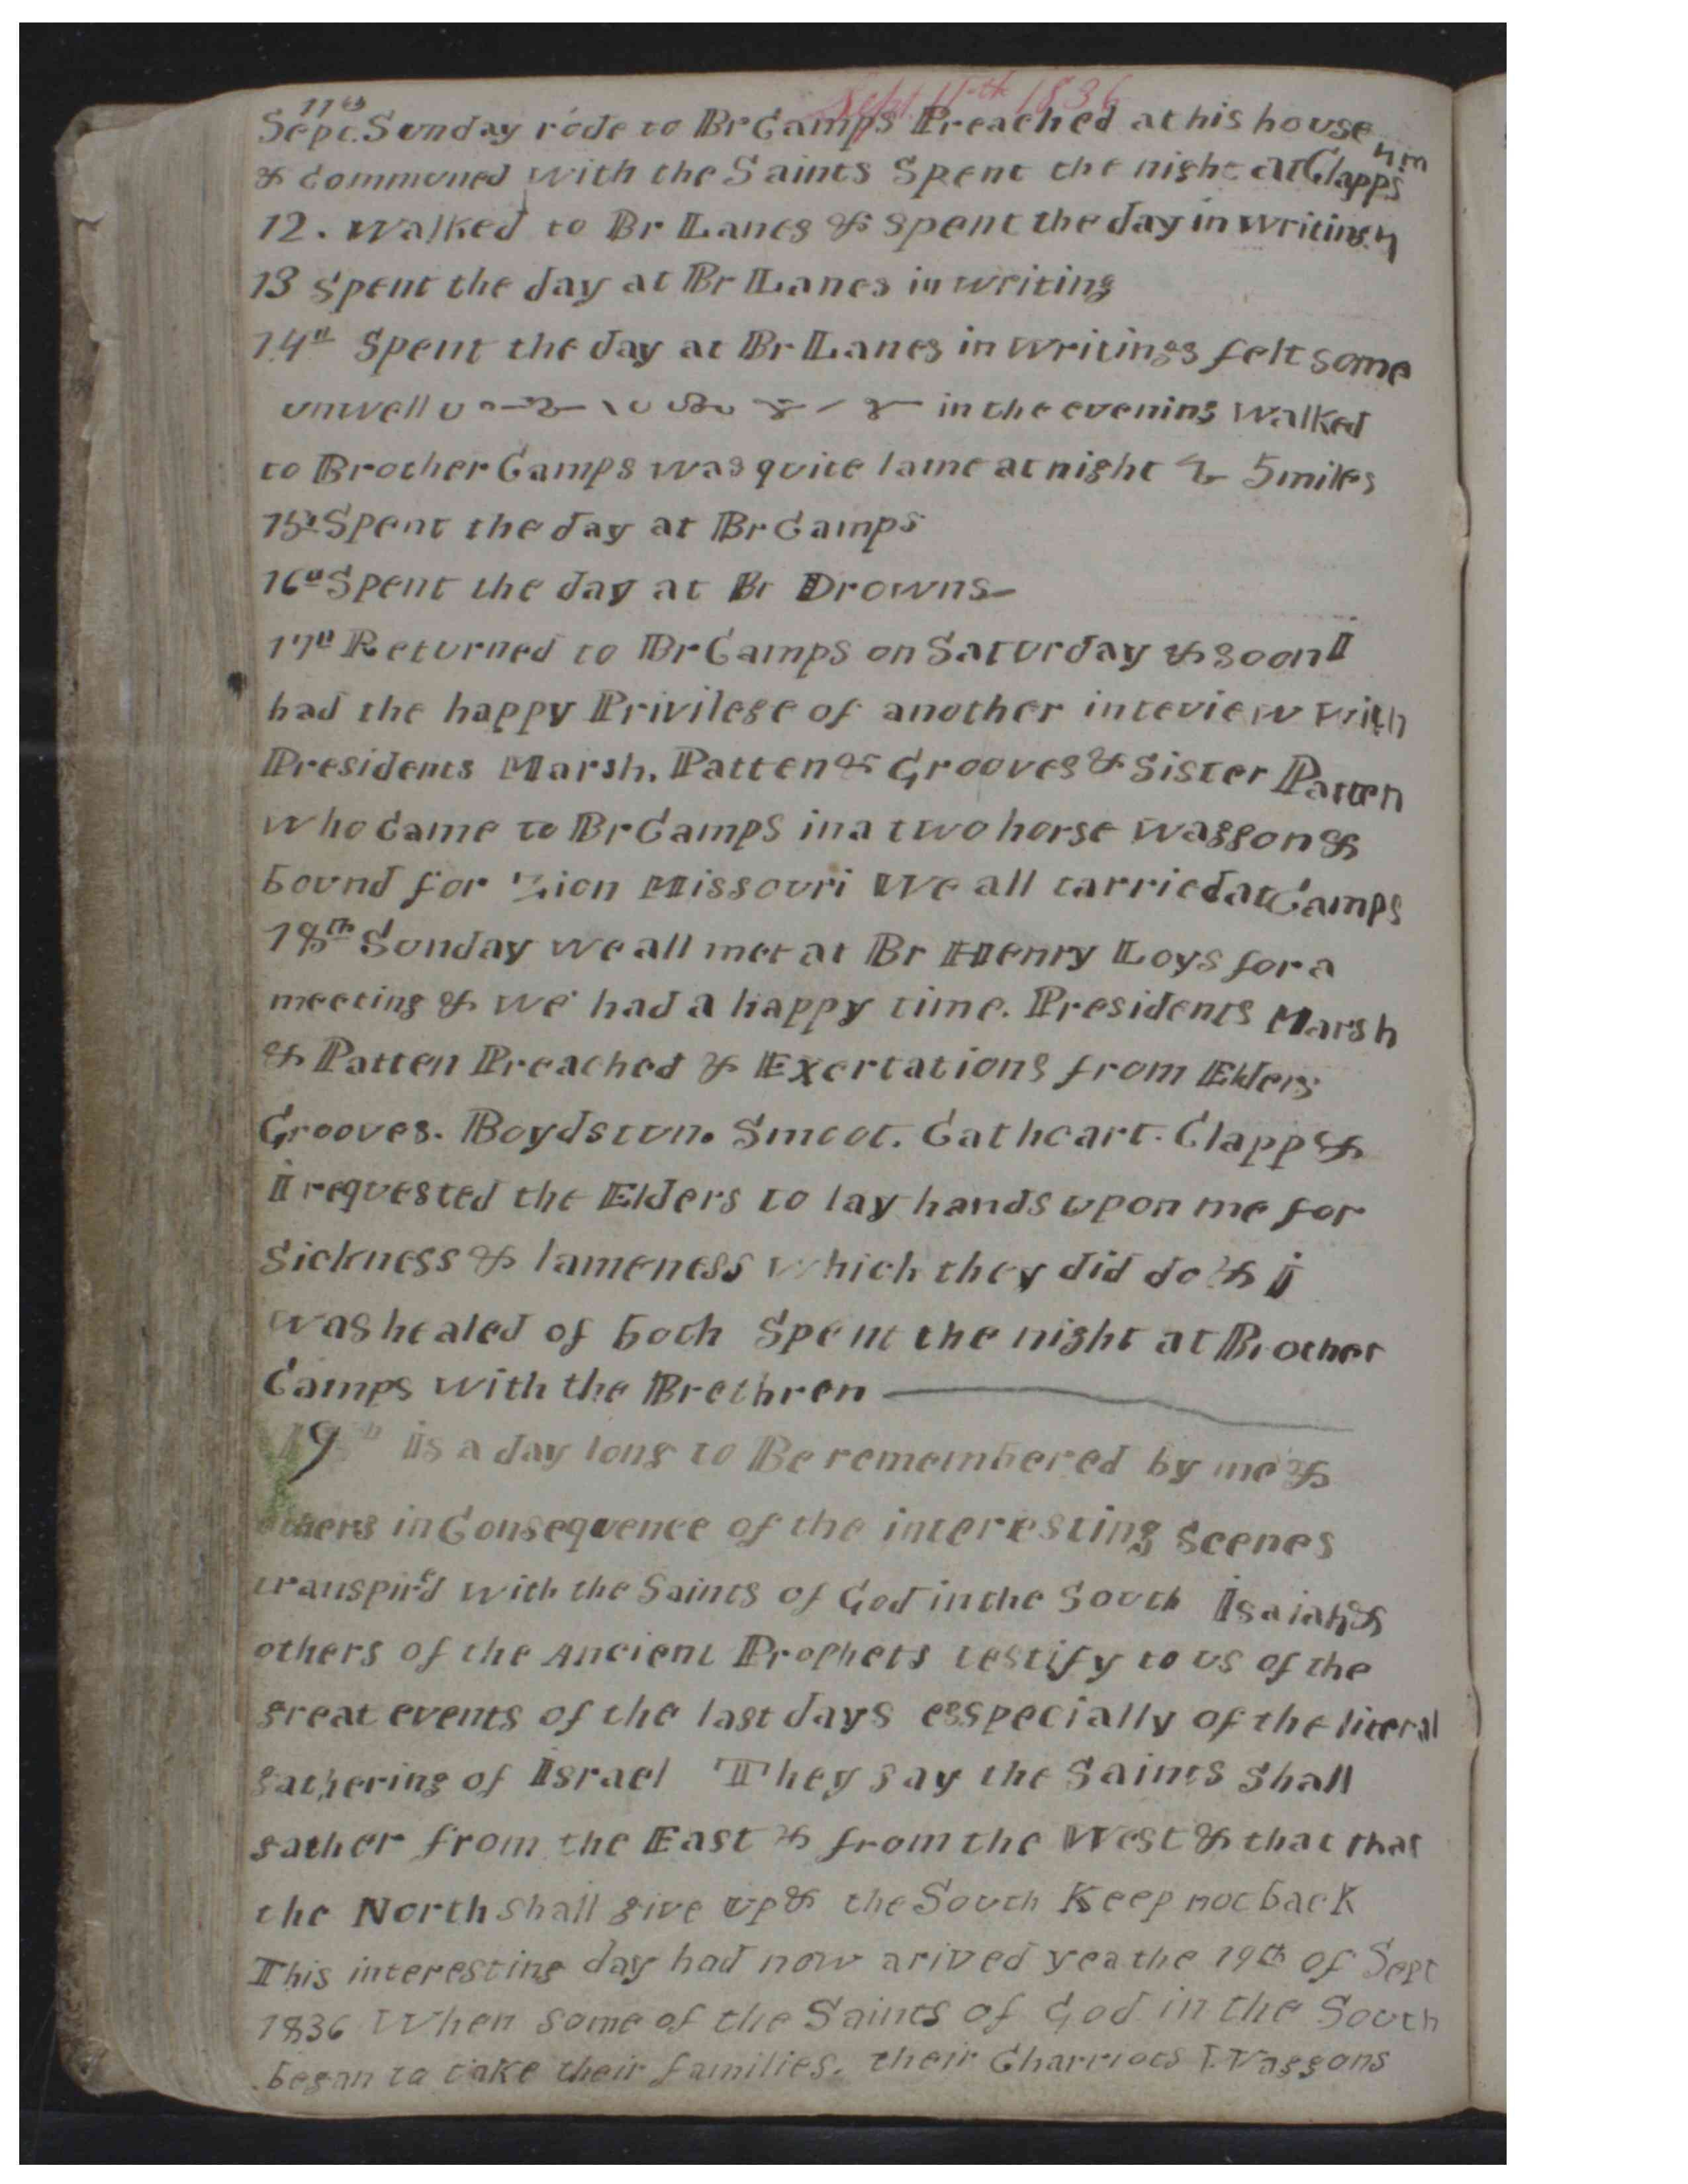 Sept. 11th 1836
Sept. 11th Sunday rode to Br Camps Preached at his house
& Communed with the Saints Spent the night at Clapps
12. Walked to Br Lanes & Spent the day in writing
13 Spent the day at Br Lanes in writing
14th Spent the day at Br Lanes in writings felt some
unwell in the evening walked
to Brother Camps was quite lame at night 5 miles
15th Spent the day at Br Camps
16th Spent the day at Br Drowns
17th Returned to Br Camps on Saturday & soon I
had the happy Privilege of another inteview with
Presidents Marsh. Patten & Grooves & Sister Patten
who Came to Br Camps in a two horse waggon &
bound for Zion Missouri We all tarried at Camps
18th Sunday we all met at Br Henry Loys for a
meeting & we had a happy time. Presidents Marsh
& Patten Preached & Exertations from Elders
Grooves. Boydstun. Smoot. Cathcart. Clapp &
I requested the Elders to lay hands upon me for
Sickness & lameness which they did do & I
was healed of both Spent the night at Brother
Camps with the Brethren
19th Is a day long to Be remembered by me &
others in Consequence of the interesting Scenes
transpir'd with the Saints of God in the South Isaiah &
others of the Ancient Prophets testify to us of the
great events of the last days esspecially of the literal
gathering of Israel They say the Saints Shall
gather from the East & from the West & that that
the North shall give up & the South Keep not back
This interesting day had now arived yea the 19th of Sept
1836 When some of the Saints of God in the South
began to take their families. their Charriots Waggons